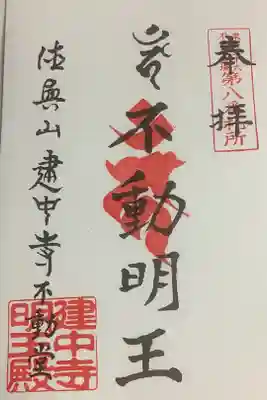 奉拝
第八
所
不動明王
徳興山建中寺不動堂
建中寺
明王殿